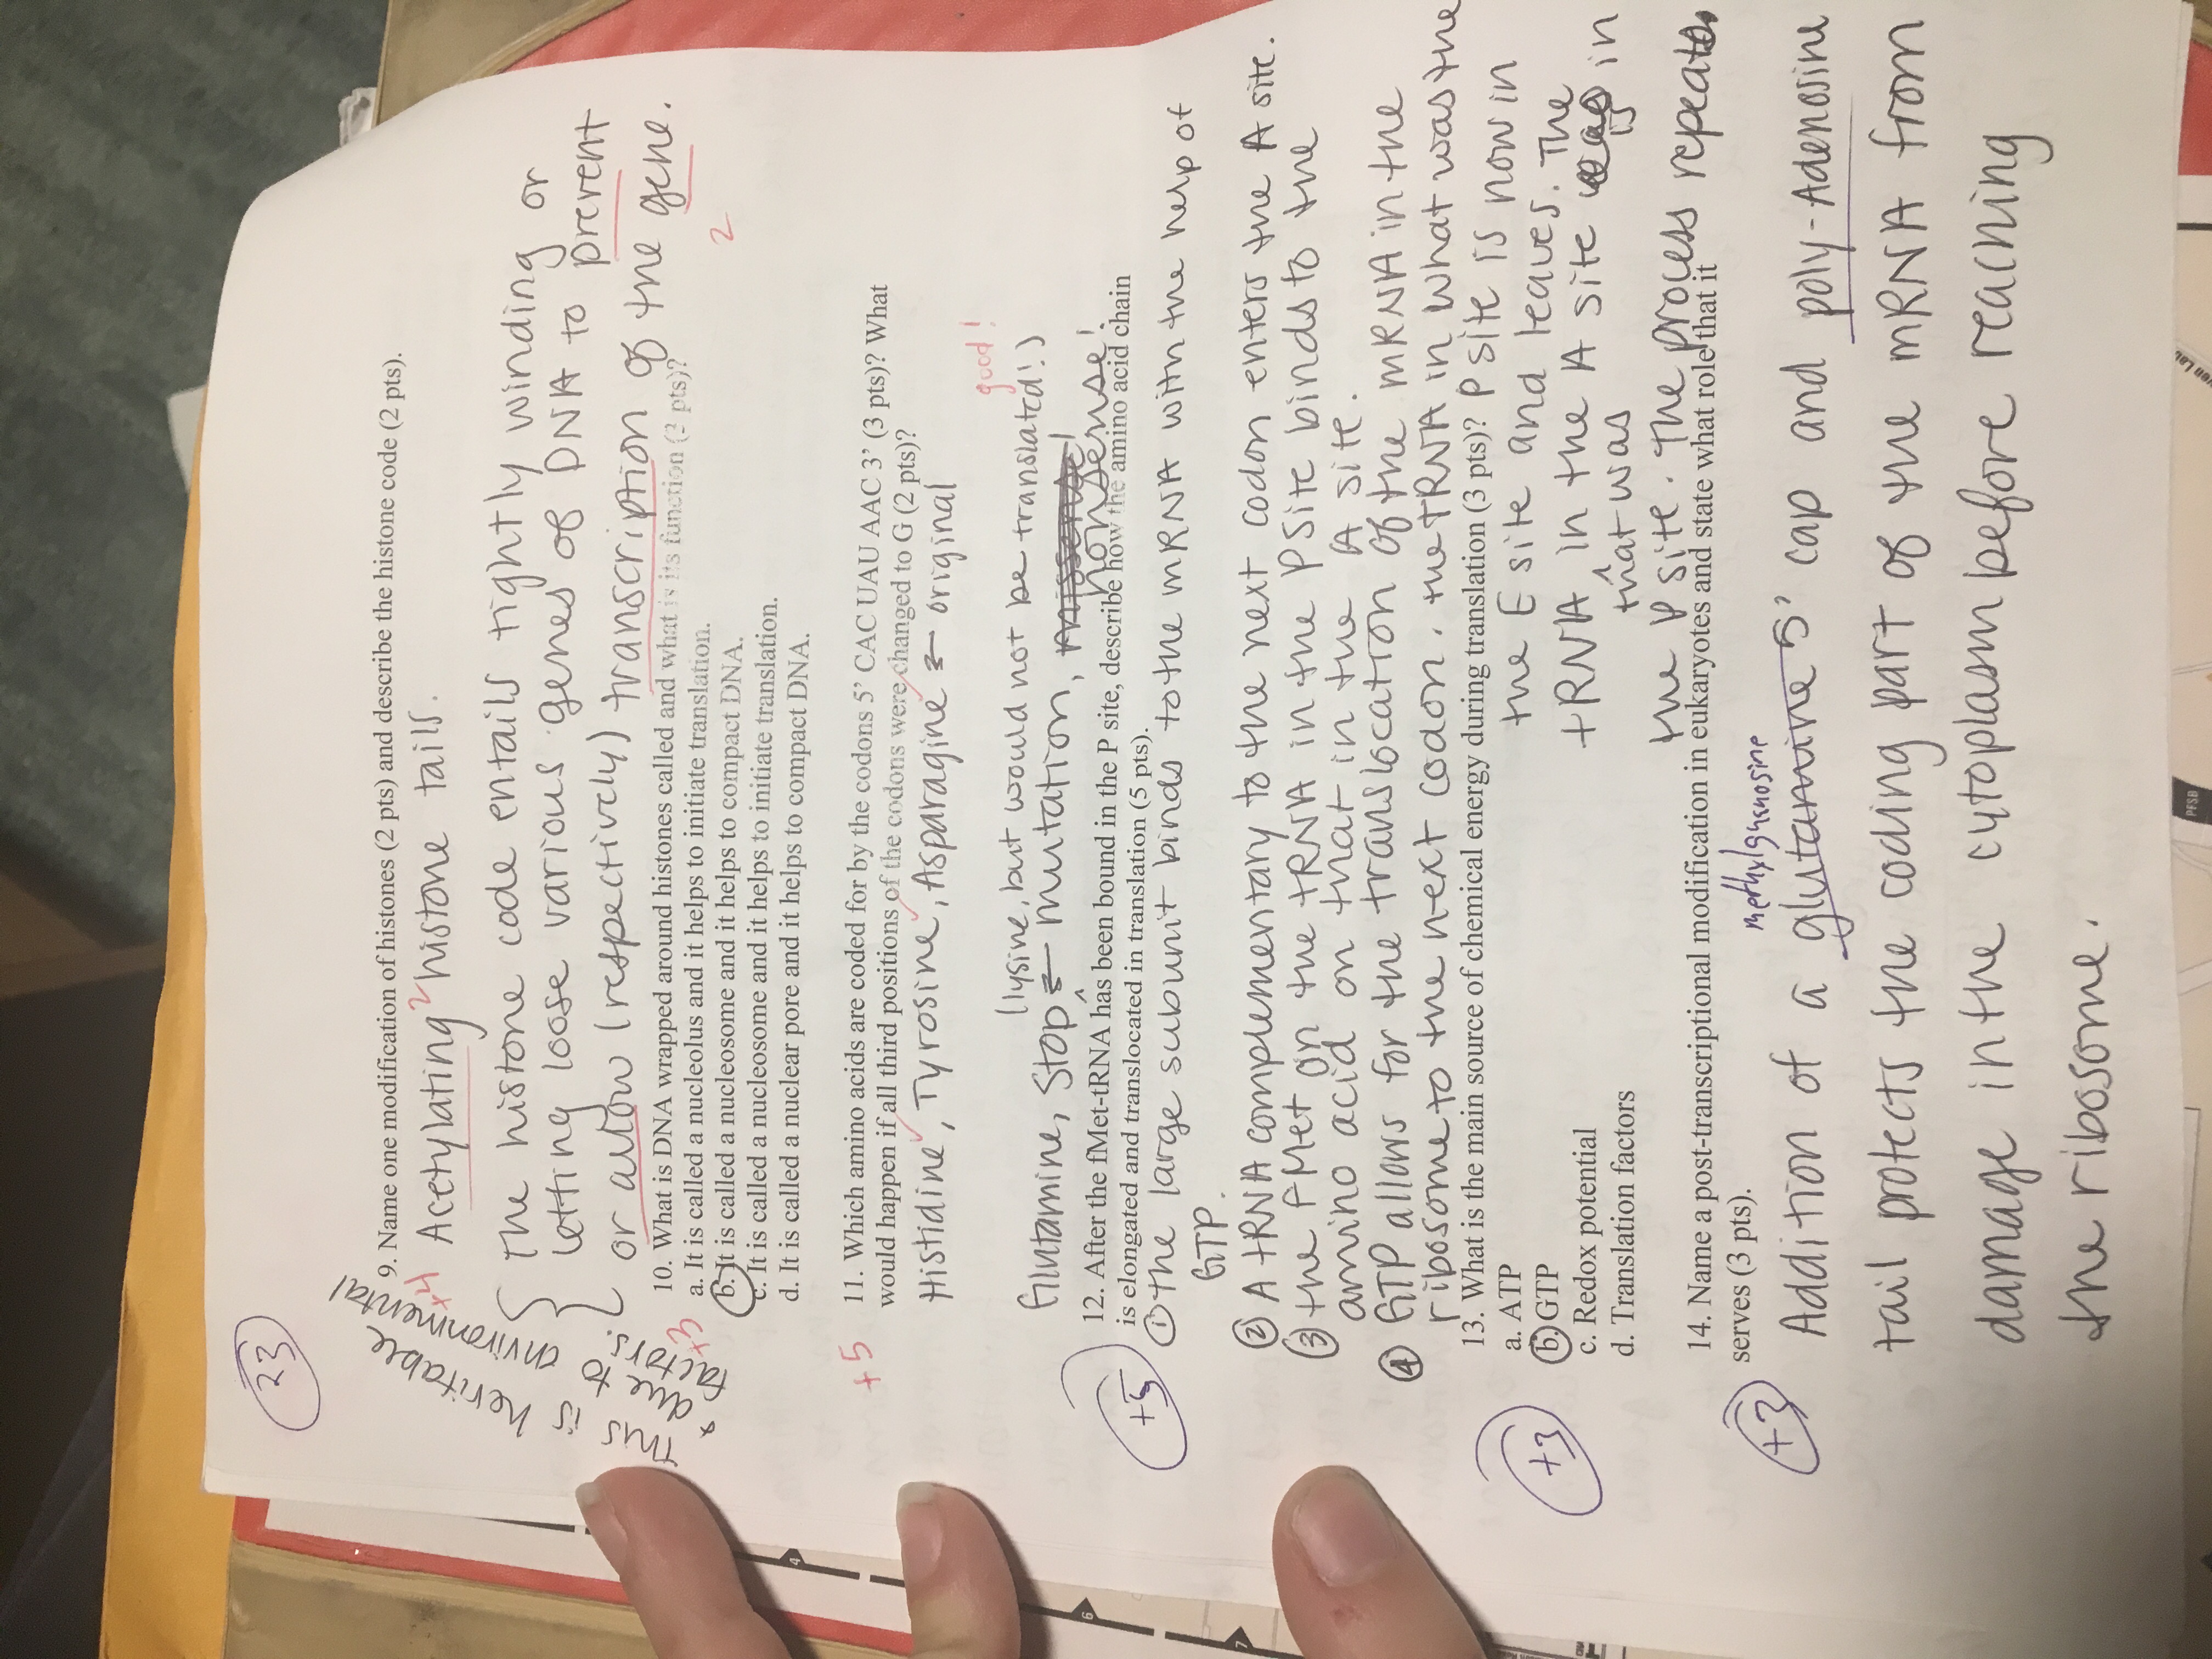 23
This is heritable
& due to environmental
factors.
9. Name one modification of histones (2 pts) and describe the histone code (2 pts).
+4
Acetylating 2 histone tails.
The histone code entails tightly winding or
letting loose various genes of DNA to prevent
or allow (respectively) transcription of the gene.
2
10. What is DNA wrapped around histones called and what is its function (3 pts)?
+3
a. It is called a nucleolus and it helps to initiate translation.
b. It is called a nucleosome and it helps to compact DNA.
c. It is called a nucleosome and it helps to initiate translation.
d. It is called a nuclear pore and it helps to compact DNA.
+5
11. Which amino acids are coded for by the codons 5’ CAC UAU AAC 3’ (3 pts)? What
would happen if all third positions of the codons were changed to G (2 pts)?
Histidine, Tyrosine, Asparagine ← original
good!
(lysine, but would not be translated!)
Glutamine, Stop ← mutation, missense!
nonsense!
12. After the fMet-tRNA has been bound in the P site, describe how the amino acid chain
is elongated and translocated in translation (5 pts).
+5
① the large subunit binds to the mRNA with the help of
GTP.
② A tRNA complementary to the next codon enters the A site.
③ the fMet on the tRNA in the P site binds to the
amino acid on that in the A site.
④ GTP allows for the translocation of the mRNA in the
ribosome to the next codon. the tRNA in what was the
P site is now in
the E site and leaves. The
tRNA in the A site is in
that was
the P site. The process repeats.
13. What is the main source of chemical energy during translation (3 pts)?
+3
a. ATP
b. GTP
c. Redox potential
d. Translation factors
14. Name a post-transcriptional modification in eukaryotes and state what role that it
serves (3 pts).
+3
methylguanosine
Addition of a glutamine 5’ cap and poly-Adenosine
tail protects the coding part of the mRNA from
damage in the cytoplasm before reaching
the ribosome.
4
6
7
PFSB